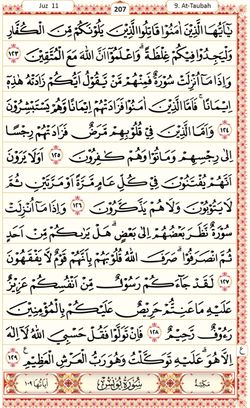 Juz 11
207
9. At-Taubah
يَٰٓأَيُّهَا ٱلَّذِينَ ءَامَنُوا۟ قَٰتِلُوا۟ ٱلَّذِينَ يَلُونَكُم مِّنَ ٱلْكُفَّارِ
وَلْيَجِدُوا۟ فِيكُمْ غِلْظَةً ۚ وَٱعْلَمُوٓا۟ أَنَّ ٱللَّهَ مَعَ ٱلْمُتَّقِينَ ١٢٣
وَإِذَا مَآ أُنزِلَتْ سُورَةٌ فَمِنْهُم مَّن يَقُولُ أَيُّكُمْ زَادَتْهُ هَٰذِهِۦٓ
إِيمَٰنًا ۚ فَأَمَّا ٱلَّذِينَ ءَامَنُوا۟ فَزَادَتْهُمْ إِيمَٰنًا وَهُمْ يَسْتَبْشِرُونَ
١٢٤ وَأَمَّا ٱلَّذِينَ فِى قُلُوبِهِم مَّرَضٌ فَزَادَتْهُمْ رِجْسًا
إِلَىٰ رِجْسِهِمْ وَمَاتُوا۟ وَهُمْ كَٰفِرُونَ ١٢٥ أَوَلَا يَرَوْنَ
أَنَّهُمْ يُفْتَنُونَ فِى كُلِّ عَامٍ مَّرَّةً أَوْ مَرَّتَيْنِ ثُمَّ
لَا يَتُوبُونَ وَلَا هُمْ يَذَّكَّرُونَ ١٢٦ وَإِذَا مَآ أُنزِلَتْ
سُورَةٌ نَّظَرَ بَعْضُهُمْ إِلَىٰ بَعْضٍ هَلْ يَرَىٰكُم مِّنْ أَحَدٍ
ثُمَّ ٱنصَرَفُوا۟ ۚ صَرَفَ ٱللَّهُ قُلُوبَهُم بِأَنَّهُمْ قَوْمٌ لَّا يَفْقَهُونَ
١٢٧ لَقَدْ جَآءَكُمْ رَسُولٌ مِّنْ أَنفُسِكُمْ عَزِيزٌ
عَلَيْهِ مَا عَنِتُّمْ حَرِيصٌ عَلَيْكُم بِٱلْمُؤْمِنِينَ
رَءُوفٌ رَّحِيمٌ ١٢٨ فَإِن تَوَلَّوْا۟ فَقُلْ حَسْبِىَ ٱللَّهُ لَآ إِلَٰهَ
إِلَّا هُوَ ۖ عَلَيْهِ تَوَكَّلْتُ ۖ وَهُوَ رَبُّ ٱلْعَرْشِ ٱلْعَظِيمِ ١٢٩
مَكِّيَّة سُورَةُ يُونُسَ آياتها ١٠٩